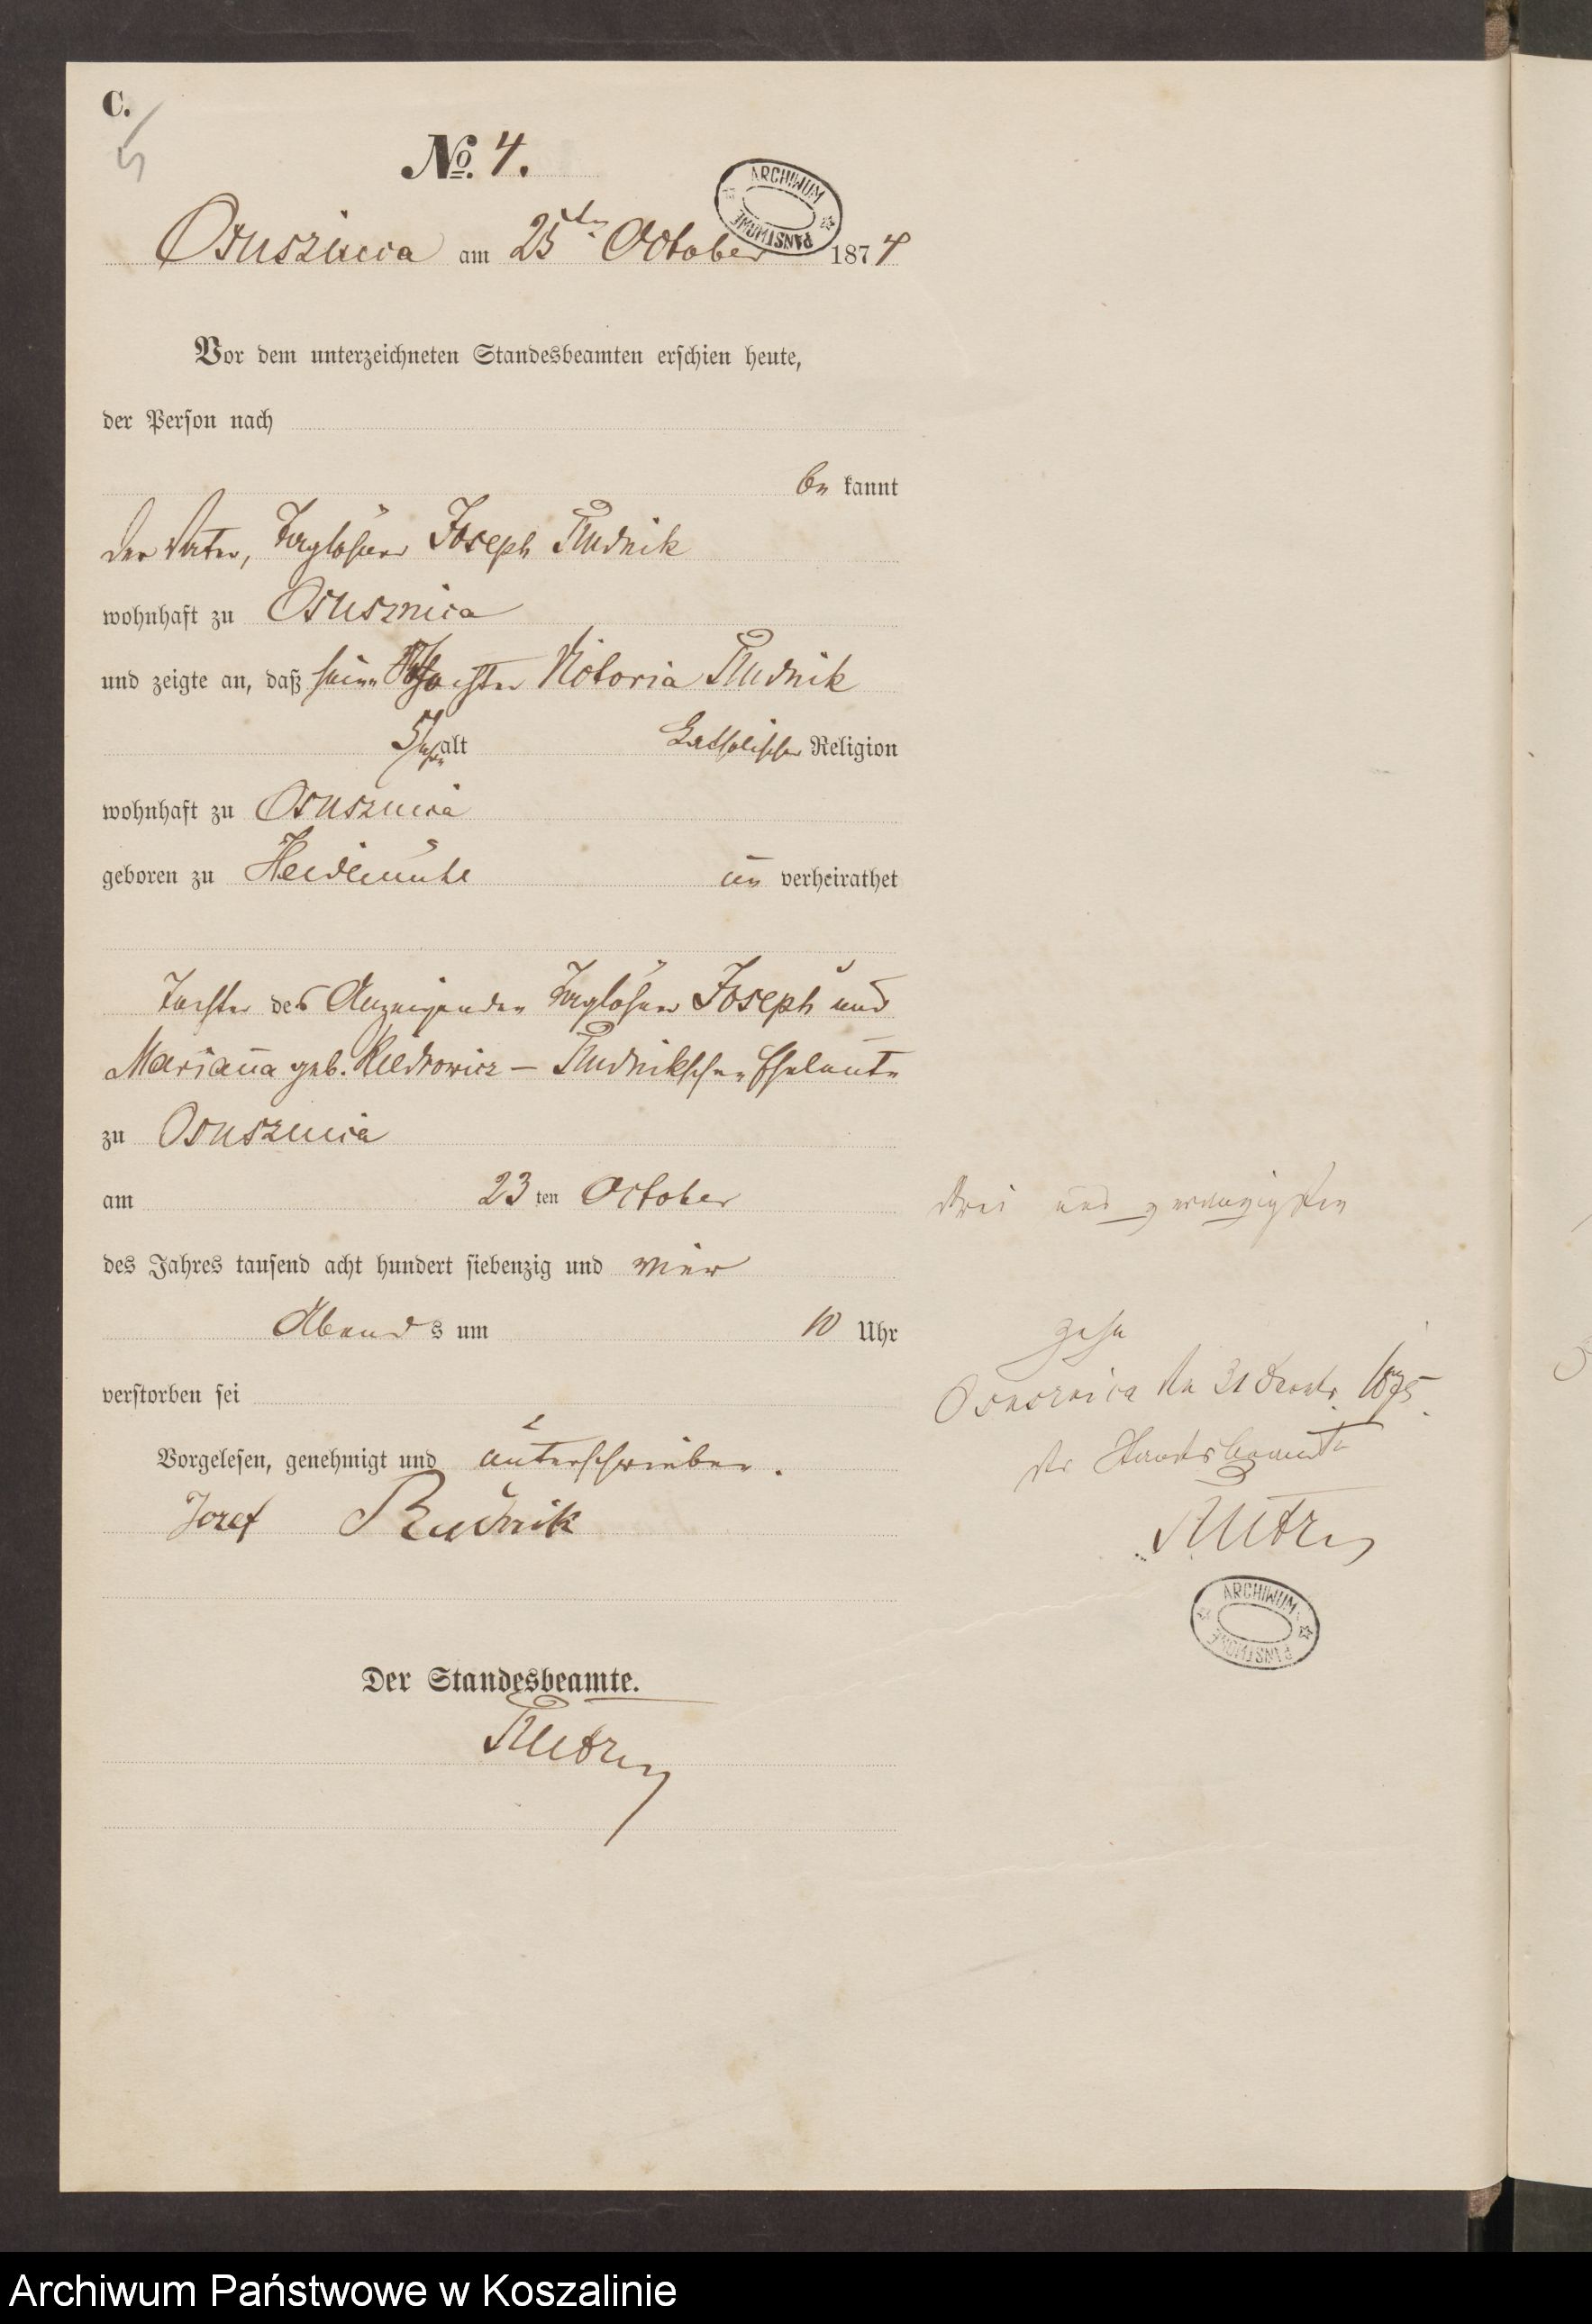 C.
5
No. 4.
ARCHIWUM PAŃSTWOWE
Osusznica am 25ten October 1874
Vor dem unterzeichneten Standesbeamten erschien heute,
der Person nach
be kannt
der Vater, Taglöhner Joseph Rudnik
wohnhaft zu Osusznica
und zeigte an, daß seine Tochter Victoria Rudnik
alt Catholischer Religion
wohnhaft zu Osusznica
geboren zu Heidemühle un verheirathet
Tochter des Anzeigenden Taglöhner Joseph und
Marianna geb. – Rudnikschen Eheleute
zu Osusznica
am 23 ten October
drei und zwanzigsten
des Jahres tausend acht hundert siebenzig und vier
Abends um 10 Uhr
zehn
verstorben sei
Osusznica den 31 1875.
Vorgelesen, genehmigt und unterschrieben.
der Standesbeamte
Jozef Rudnik
ARCHIWUM PAŃSTWOWE
Der Standesbeamte.
Archiwum Państwowe w Koszalinie